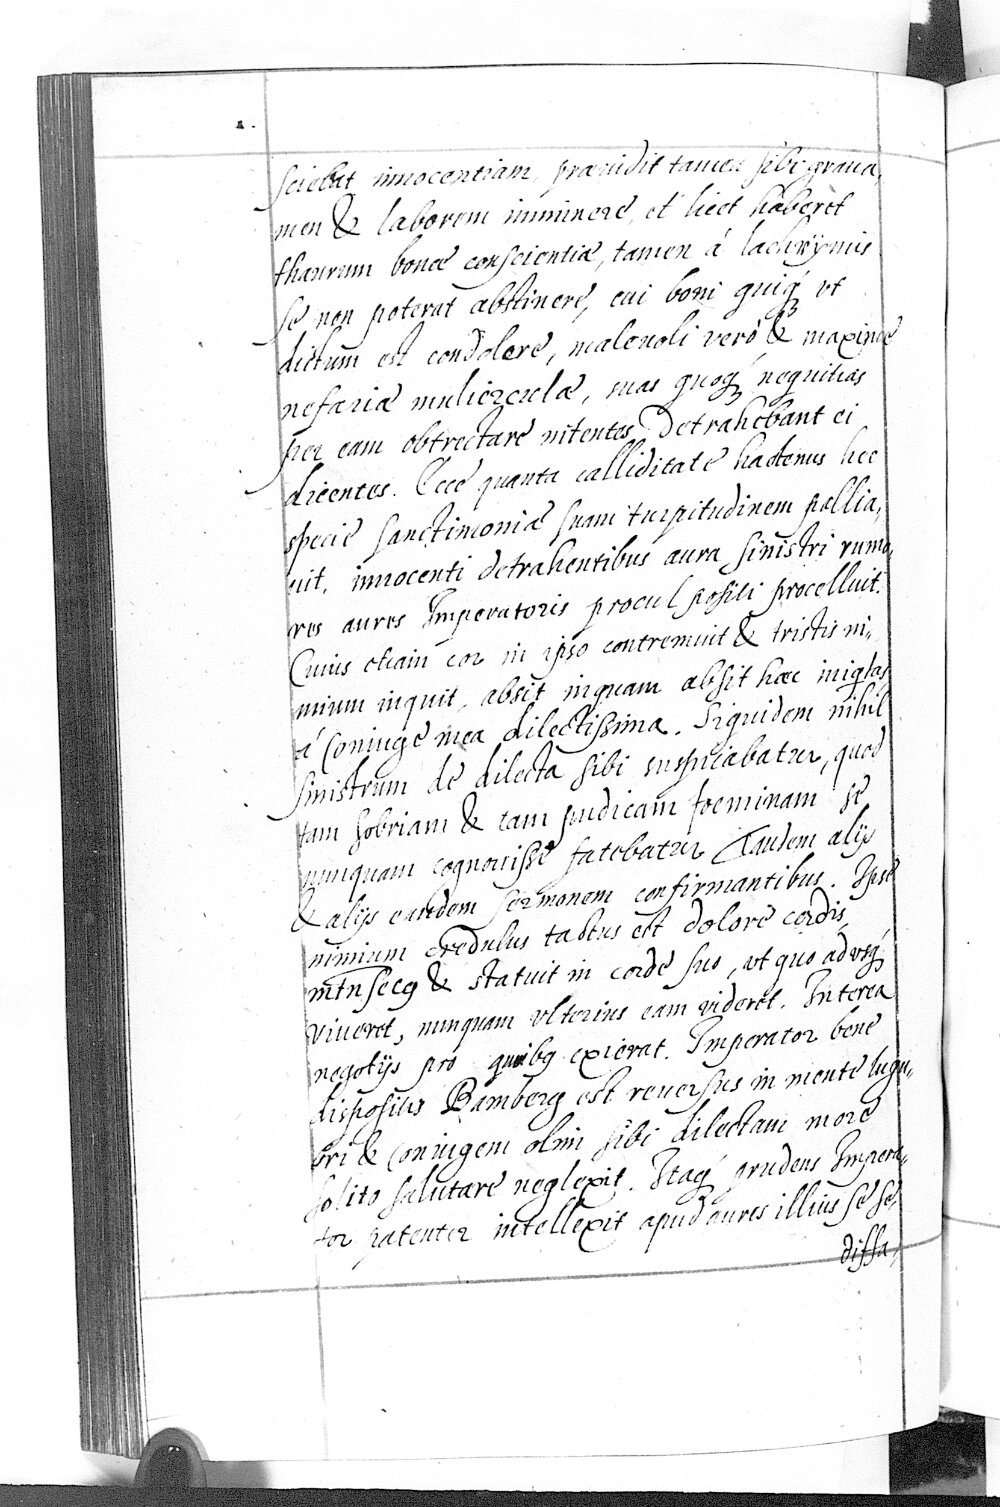 sciebat innocentiam, præuidit tamen sibi graua,
men & laborem imminere, et licet haberet
thaurum bonæ conscientiæ, tamen á lachrÿmis
se non poterat abstinere, cui boni quiq́ vt
dictum est condolere, maleuoli veró & maxime
nefariæ mulierculæ, suas quoq́ nequitias
per eam obtrectare nitentes Detrahebant ei
dicentes. Ecce quanta calliditate hactenus hec
specie sanctimoniæ suam turpitudinem pallia,
uit, innocenti detrahentibus aura sinistri rumo,
res aures Imperatoris procul positi procelluit.
Cuius etiam cor in ipso contremuit & tristis ni,,
mium inquit, absit inquam absit hæc iniq̃tas
á Coniuge mea dilectissima. Siquidem nihil
sinistrum de dilecta sibi suspicabatur, quod
tam sobriam & tam pudicam foeminam se
nunquam cognouisse fatebatur Tandem alijs
& alijs eandem sermonem confirmantibus. Ipse
nimium credulus tactus est dolore cordis,
intrinsecq & statuit in corde suo, vt quo advsq́
viueret, nunquam vlterius eam videret. Interea
negotijs pro quibq exierat. Imperator bene
dispositis Bamberg est reuersus in mente lugu,,
bri & Coniugem olim sibi dilectam more
solito salutare neglexit. Itaq́ prudens Impera,,
tor patenter intellexit apud aures illius se se,
diffa,